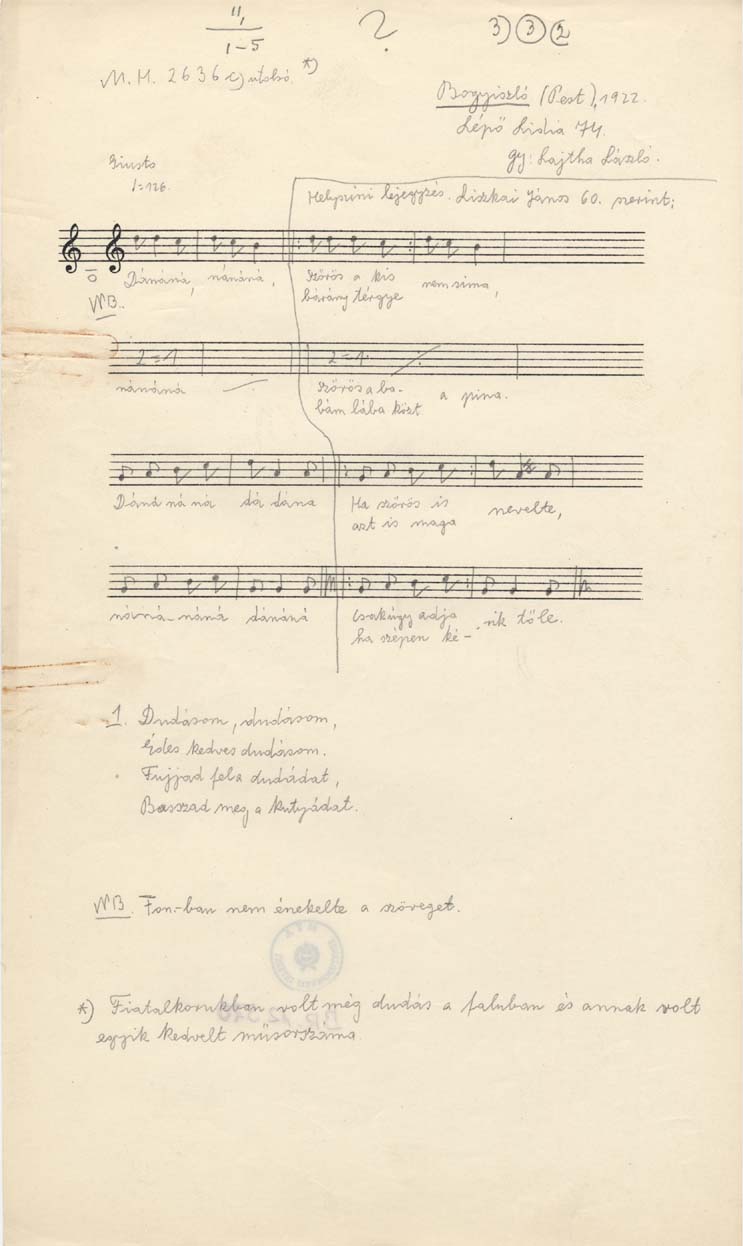 11,
1-5
?
3) 3 2
M.H. 2636 c) utolsó *)
Bogyiszló (Pest), 1922.
Lépő Lidia 74.
gy: Lajtha László.
Giusto
♩=126.
Helyszíni lejegyzés. Liszkai János 60. szerint:
Dánáná, nánáná,
NB.
Szőrös a kis
bárány térgye
nem sima,
2=1
2=1.
nánáná
Szőrös a ba-
bám lába közt
a pina.
Dáná ná ná dá dána
Ha szőrös is
azt is maga
nevelte,
náná-náná dánáná
Csakúgy adja
ha szépen ké-
rik tőle.
1. Dudásom, dudásom,
Édes kedves dudásom.
Fujjad fel a dudádat,
Basszad meg a kutyádat.
NB. Fon.-ban nem énekelte a szöveget.
*) Fiatalkorukban volt még dudás a faluban és annak volt
egyik kedvelt műsorszáma.